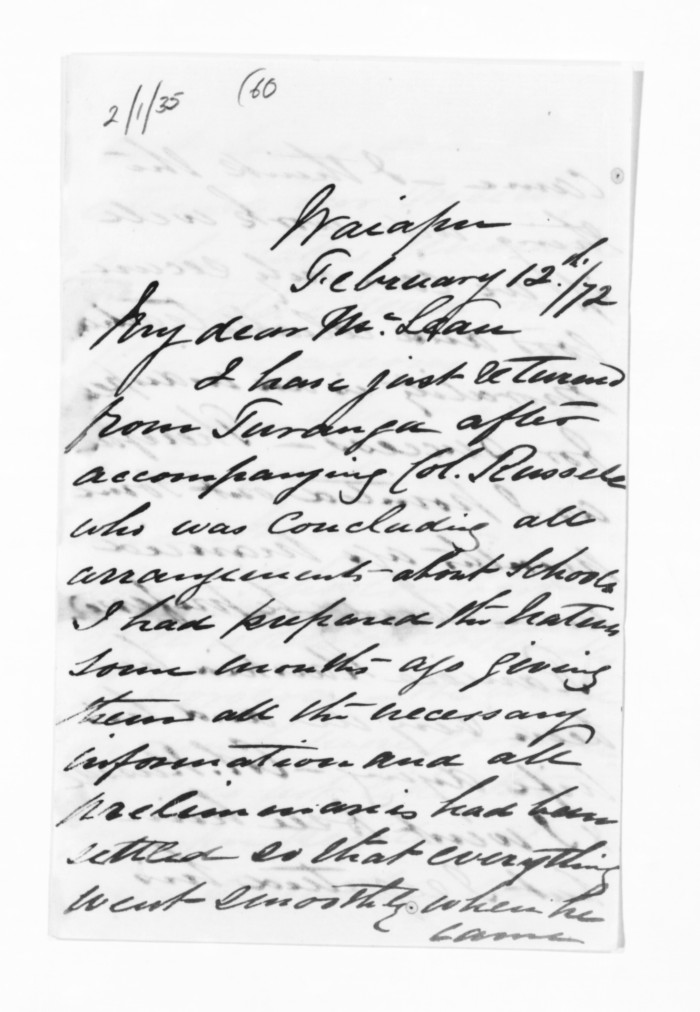 2/1/35 (60
Waiapu
February 12th/72
My dear McLean
I have just returned
from Turanga after
accompanying Col. Russell
who was concluding all
arrangements about Schools
I had prepared the Natives
some months ago giving
them all the necessary
information and all
preliminaries had been
settled so that everything
went smoothly when he
came